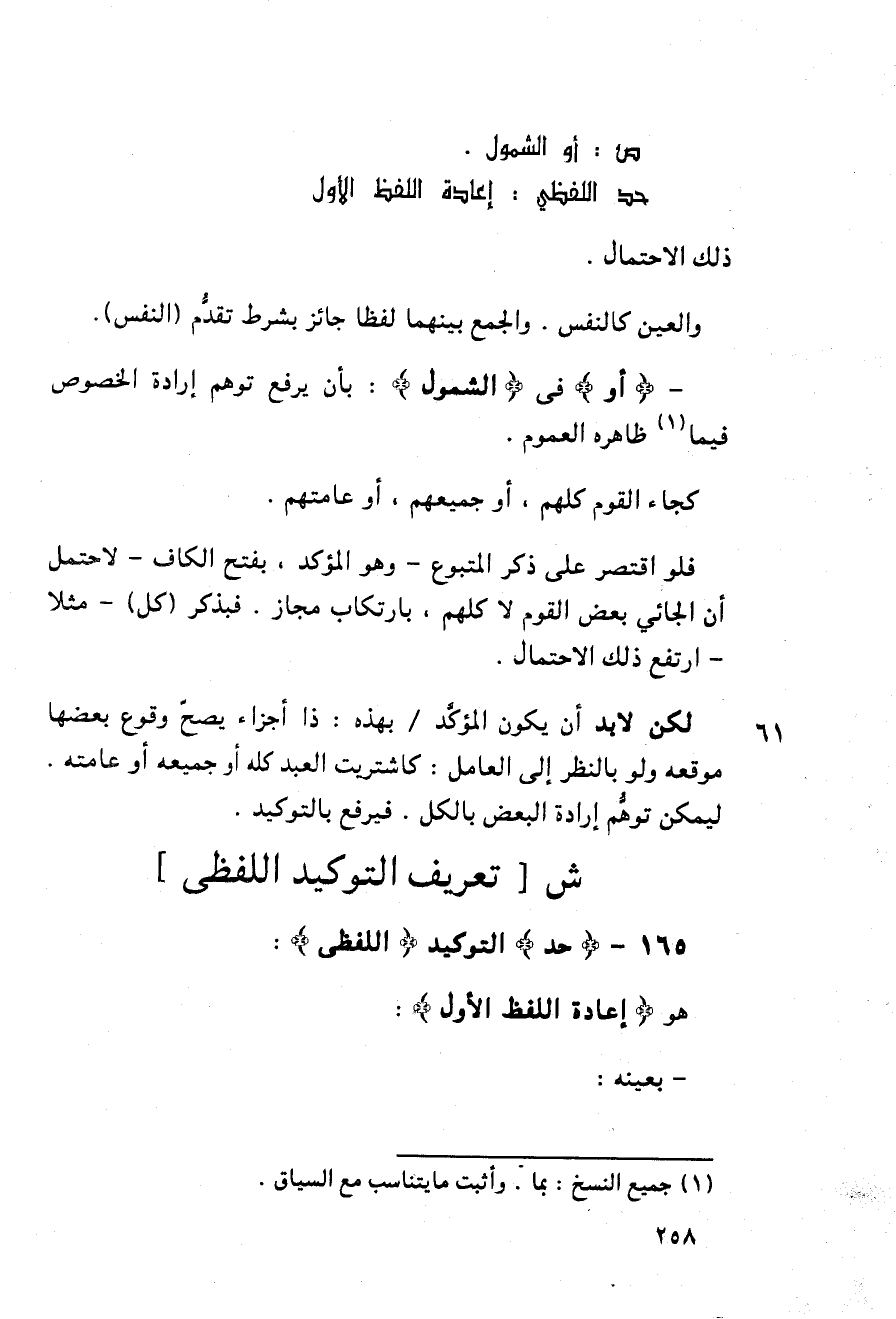 ص : أو الشمول .
حد اللفظي : إعادة اللفظ الأول
ذلك الاحتمال .
والعين كالنفس . والجمع بينهما لفظا جائز بشرط تقدُّم (النفس).
– ﴿ أو ﴾ فى ﴿ الشمول ﴾ : بأن يرفع توهم إرادة الخصوص
فيما(١) ظاهره العموم .
كجاء القوم كلهم ، أو جميعهم ، أو عامتهم .
فلو اقتصر على ذكر المتبوع – وهو المؤكد ، بفتح الكاف – لاحتمل
أن الجائي بعض القوم لا كلهم ، بارتكاب مجاز . فبذكر (كل) – مثلا
– ارتفع ذلك الاحتمال .
٦١ لكن لابد أن يكون المؤكَّد / بهذه : ذا أجزاء يصحّ وقوع بعضها
موقعه ولو بالنظر إلى العامل : كاشتريت العبد كله أو جميعه أو عامته .
ليمكن توهُّم إرادة البعض بالكل . فيرفع بالتوكيد .
ش [ تعريف التوكيد اللفظى ]
١٦٥ – ﴿ حد ﴾ التوكيد ﴿ اللفظى ﴾ :
هو ﴿ إعادة اللفظ الأول ﴾ :
– بعينه :
(١) جميع النسخ : بما . وأثبت مايتناسب مع السياق .
٢٥٨